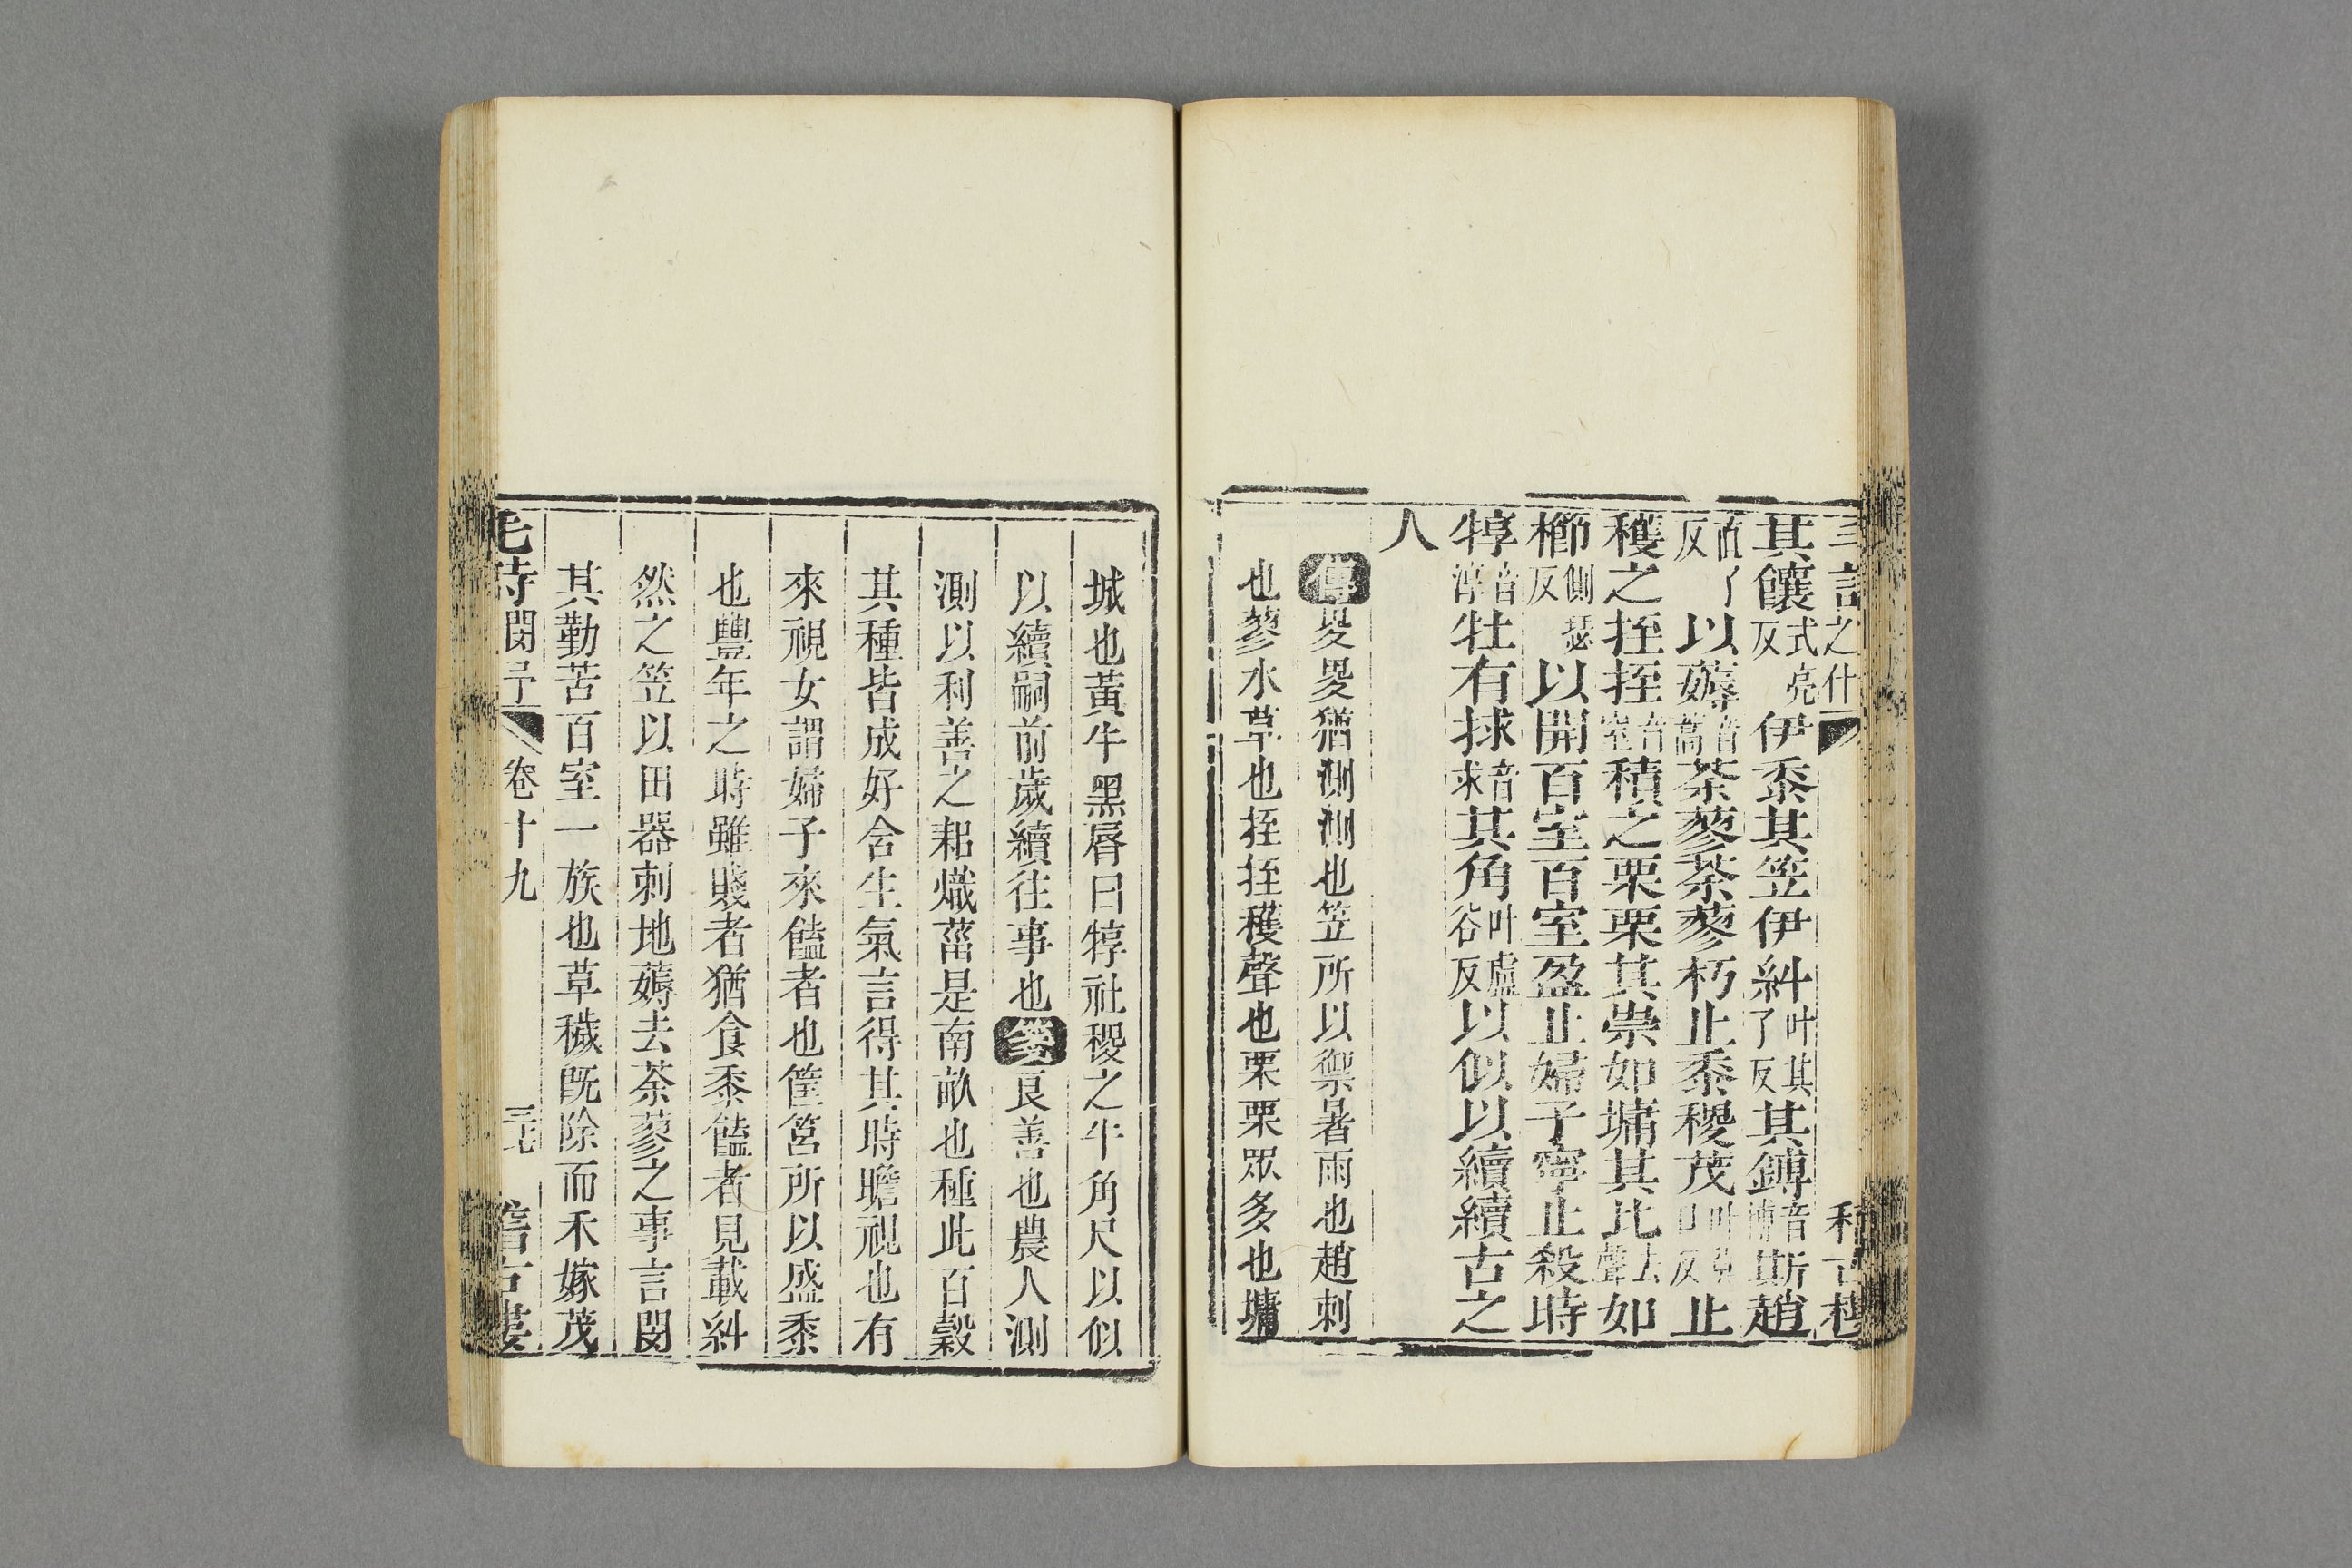 之什
其饟式亮反伊黍其笠伊糾叶其了反其鎛音博斯趙
直了反以薅音蒿荼蓼荼蓼朽止黍稷茂止
穫之挃挃音室積之栗栗其崇如墉其比去聲如
櫛側瑟反以開百室百室盈止婦子寧止殺時
犉音淳牡有捄音求其角叶盧谷反以似以續續古之
人
傳畟畟猶測測也笠所以禦暑雨也趙刺
也蓼水草也挃挃穫聲也栗栗眾多也墉
城也黃牛黑脣曰犉社稷之牛角尺以似
以續嗣前歲續往事也箋良善也農人測
測以利善之耜熾菑是南畝也種此百穀
其種皆成好含生氣言得其時瞻視也有
來視女謂婦子來饁者也筐筥所以盛黍
也豐年之時雖賤者猶食黍饁者見載糾
然之笠以田器刺地薅去荼蓼之事言閔
其勤苦百室一族也草穢既除而禾稼茂
毛詩閔予 卷十九 稽古樓